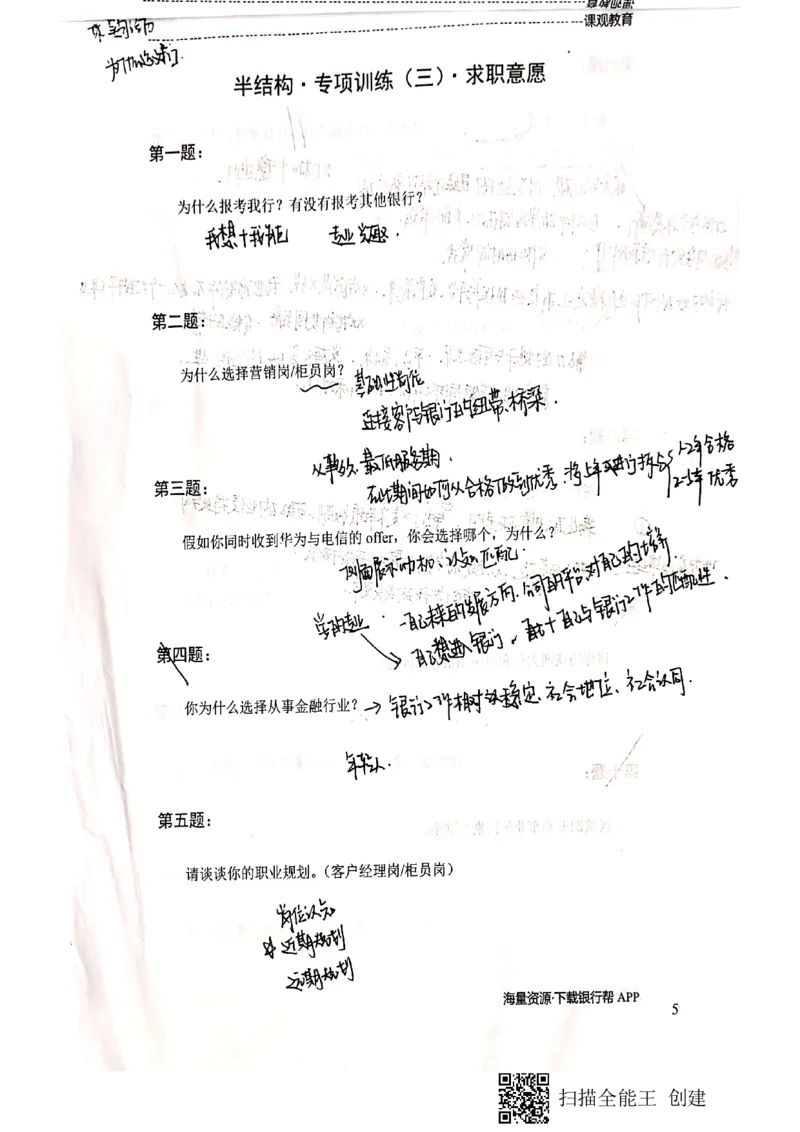 课观教育
半结构·专项训练（三）·求职意愿
第一题：
为什么报考我行？有没有报考其他银行？
我想+我能 专业 兴趣.
第二题：
为什么选择营销岗/柜员岗？
基础性岗位
连接客户与银行的纽带、桥梁.
最低服务期.
第三题：
在此期间如何从合格做到优秀.
1-2年合格
2-5年优秀
假如你同时收到华为与电信的 offer，你会选择哪个，为什么？
侧面展示动机、认知匹配.
学的专业
自己未来的发展方向.公司的平台对自己的培养.
第四题：
自己想进入银行.
自己与银行工作的匹配性.
你为什么选择从事金融行业？→银行工作相对稳定.社会地位、社会认同.
年轻人.
第五题：
请谈谈你的职业规划。（客户经理岗/柜员岗）
岗位认知
近期规划
远期规划
海量资源·下载银行帮 APP
5
扫描全能王 创建